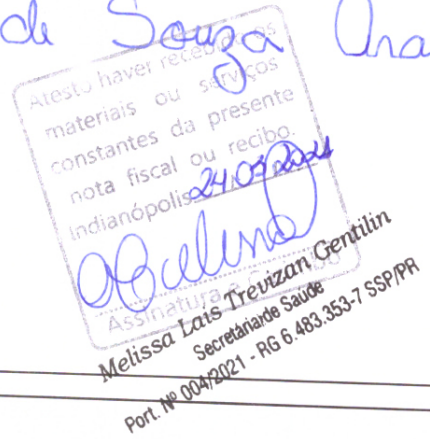 de Souza Ara
Atesto haver recebido os
materiais ou serviços
constantes da presente
nota fiscal ou recibo.
Indianópolis 24.03.2021
Assinatura e
Melissa Lais Trevizan Gentilin
Secretária de Saúde
Port. Nº 004/2021 - RG 6.483.353-7 SSP/PR